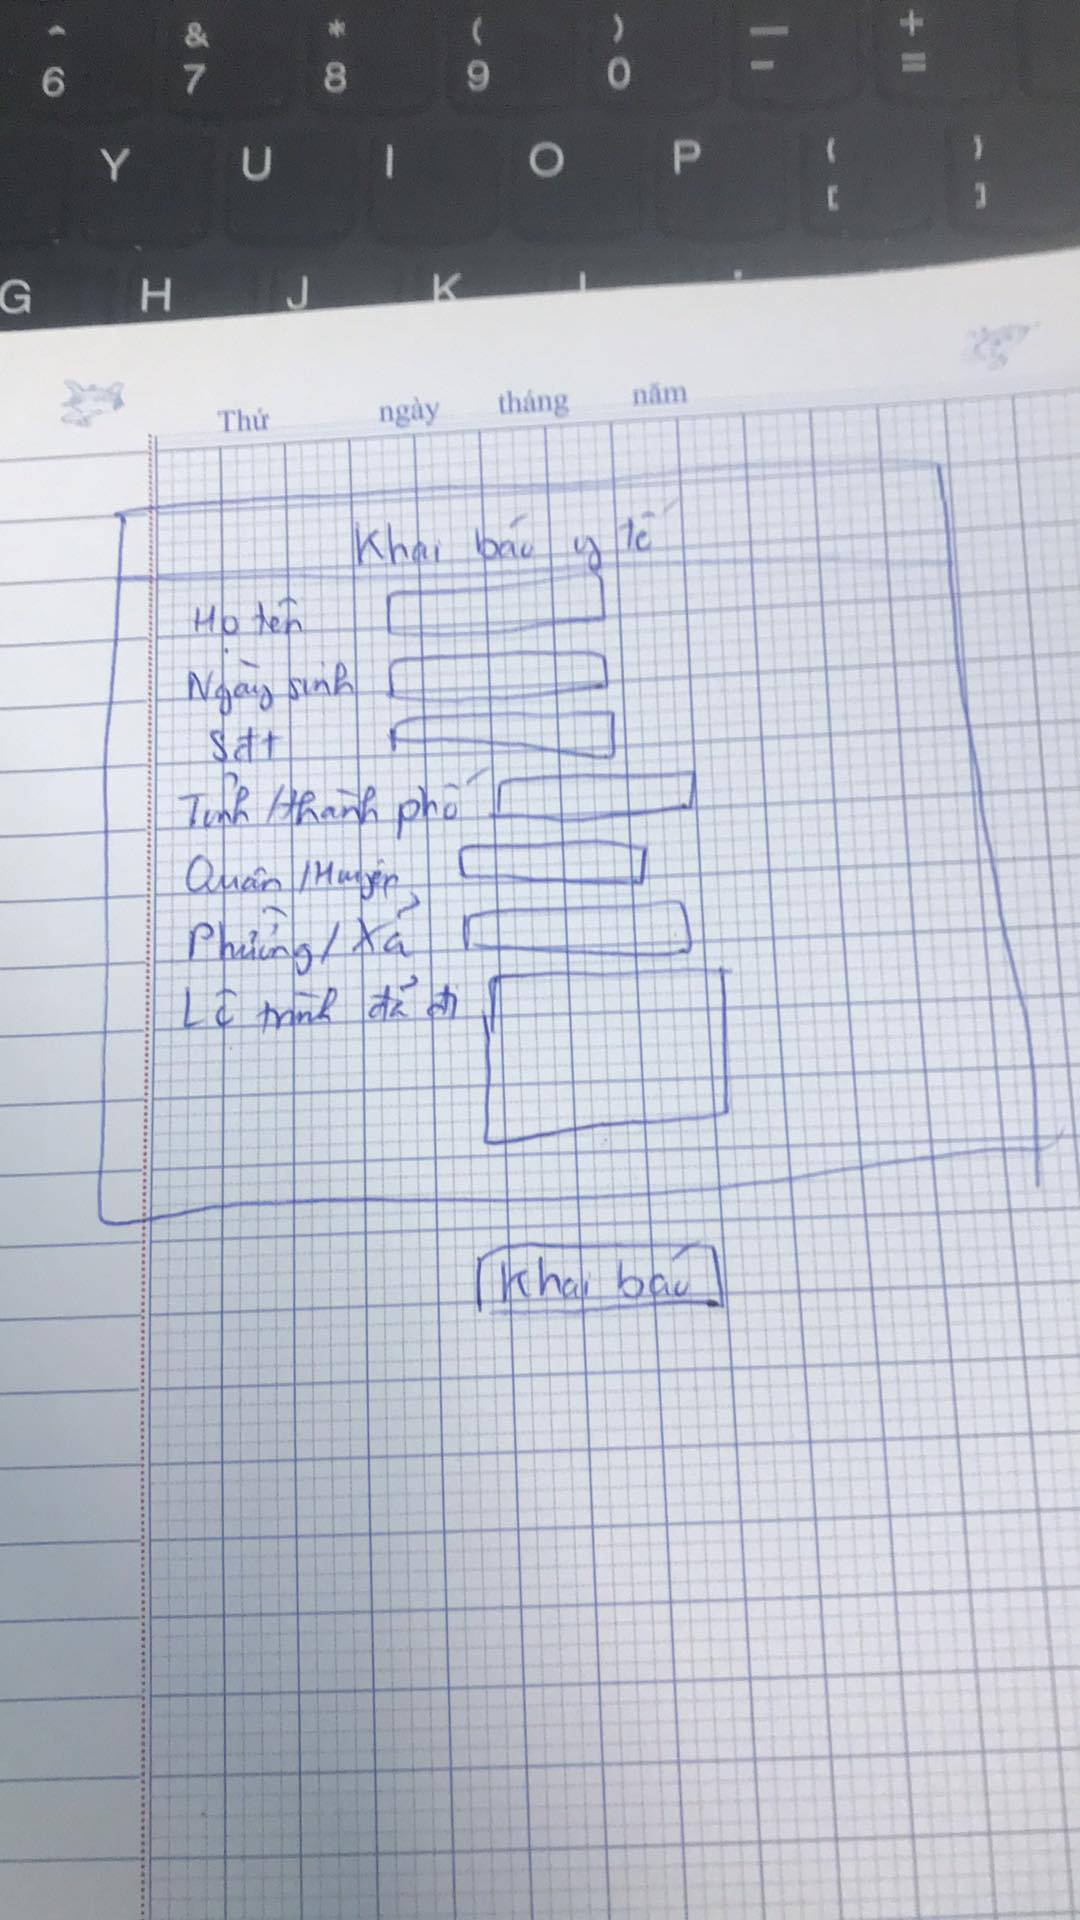 ^ & * ( ) — +
6 7 8 9 0 - =
Y U I O P { }
[ ]
G H J K
Thứ ngày tháng năm
Khai báo y tế
Họ tên
Ngày sinh
Sđt
Tỉnh/thành phố
Quận/Huyện
Phường/Xã
Lộ trình đã đi
Khai báo